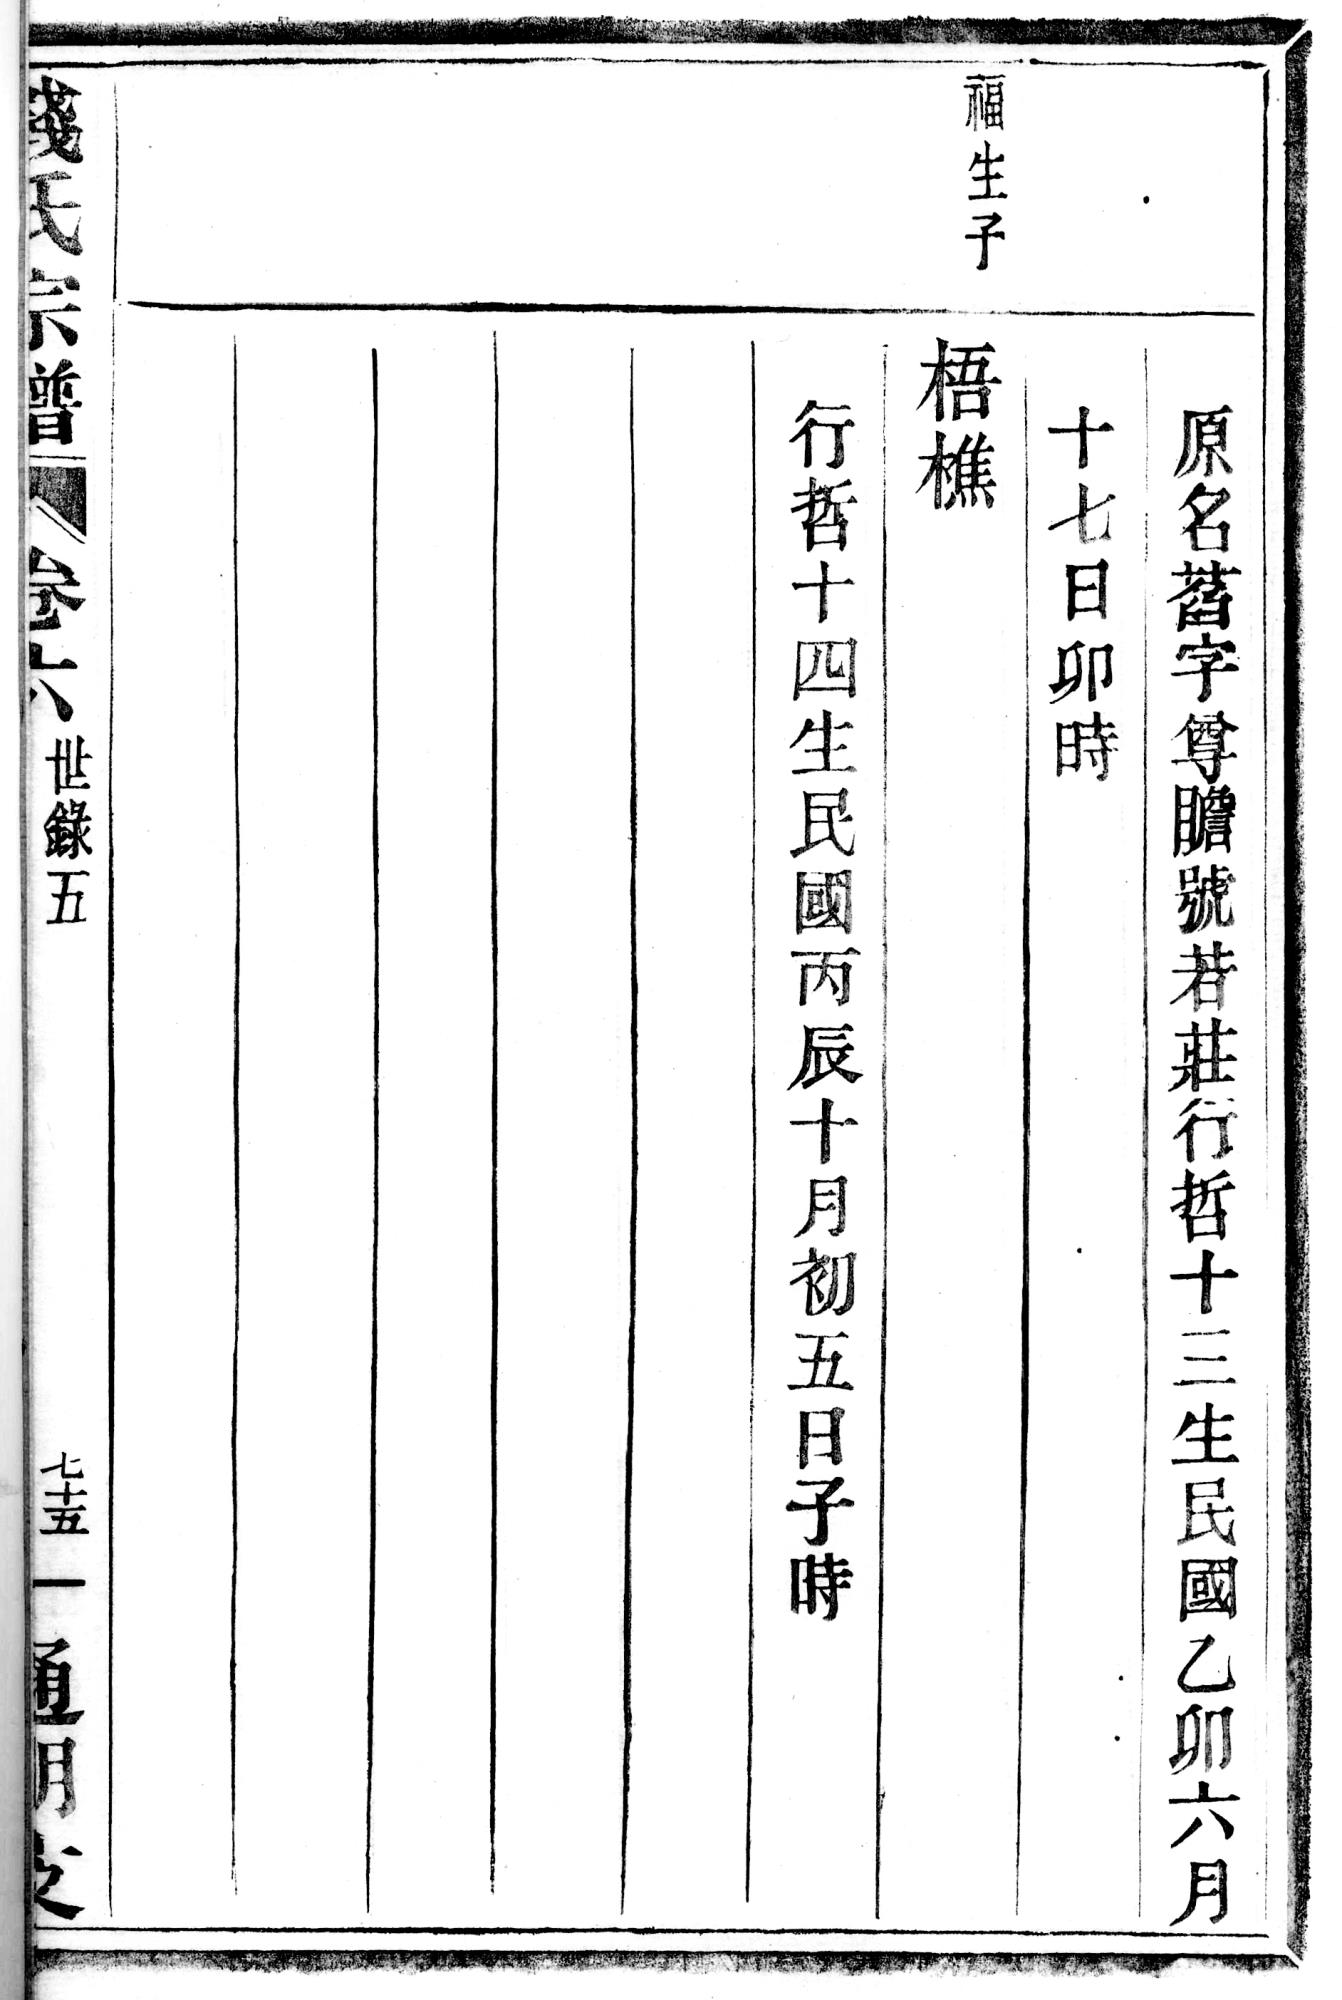 原名字尊瞻號若莊行哲十三生民國乙卯六月
十七日卯時
福生子
梧樵
行哲十四生民國丙辰十月初五日子時
錢氏宗譜
卷
世錄五
七十五
通明支